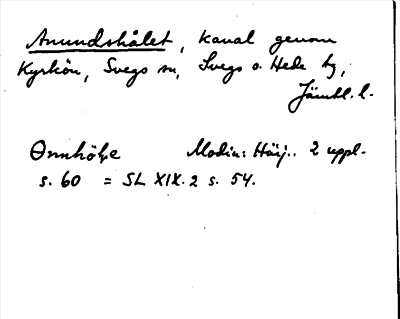 Anundshålet, kanal genom
Kyrkön, Svegs sn, Svegs o. Hede tg,
Jämtl. l.
Önnhöle Modin: Härj.. 2 uppl.
s. 60 = SL XIX. 2 s. 54.